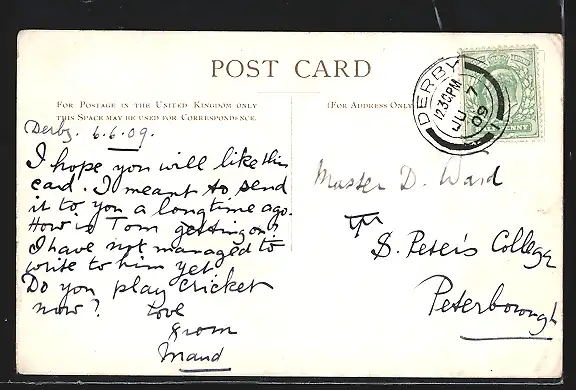 POST CARD
FOR POSTAGE IN THE UNITED KINGDOM ONLY
THIS SPACE MAY BE USED FOR CORRESPONDENCE.
(FOR ADDRESS ONLY
DERBY
12.30PM
JU 7
09
PENNY
Derby. 6.6.09.
I hope you will like this
card. I meant to send
it to you a longtime ago.
How is Tom getting on?
I have not managed to
write to him yet.
Do you play cricket
now? Love
from
Maud
Master D. Ward
S. Peter's College
Peterborough